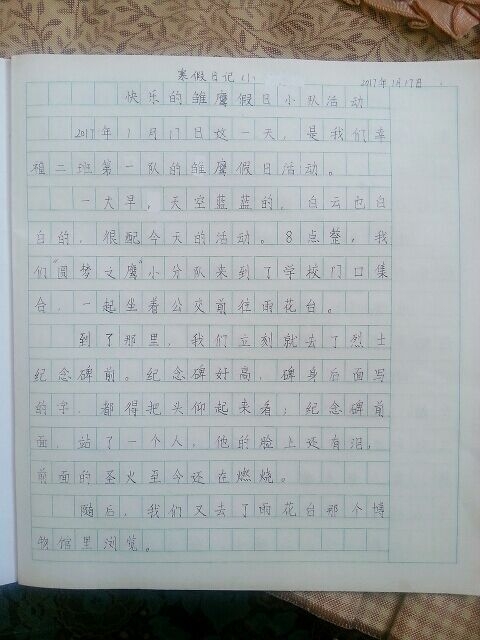 寒假日记(1)
2017年1月17日
快乐的雏鹰假日小队活动
2017年1月17日这一天，是我们幸
福二班第一队的雏鹰假日活动。
一大早，天空蓝蓝的，白云也白
白的，很配今天的活动。8点整，我
们"圆梦之鹰"小分队来到了学校门口集
合，一起坐着公交前往雨花台。
到了那里，我们立刻就去了烈士
纪念碑前。纪念碑好高，碑身后面写
的字，都得把头仰起来看；纪念碑前
面，站了一个人，他的脸上还有泪，
前面的圣火至今还在燃烧。
随后，我们又去了雨花台那个博
物馆里浏览。